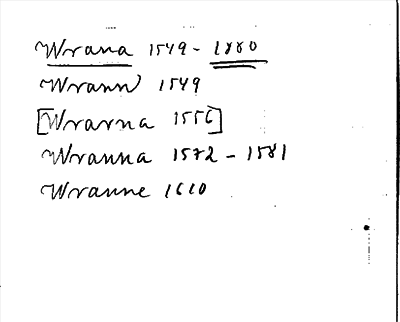 Wrana 1549 - 1880
Wrann 1549
[Wrarna 1556]
Wranna 1572 - 1581
Wranne 1610